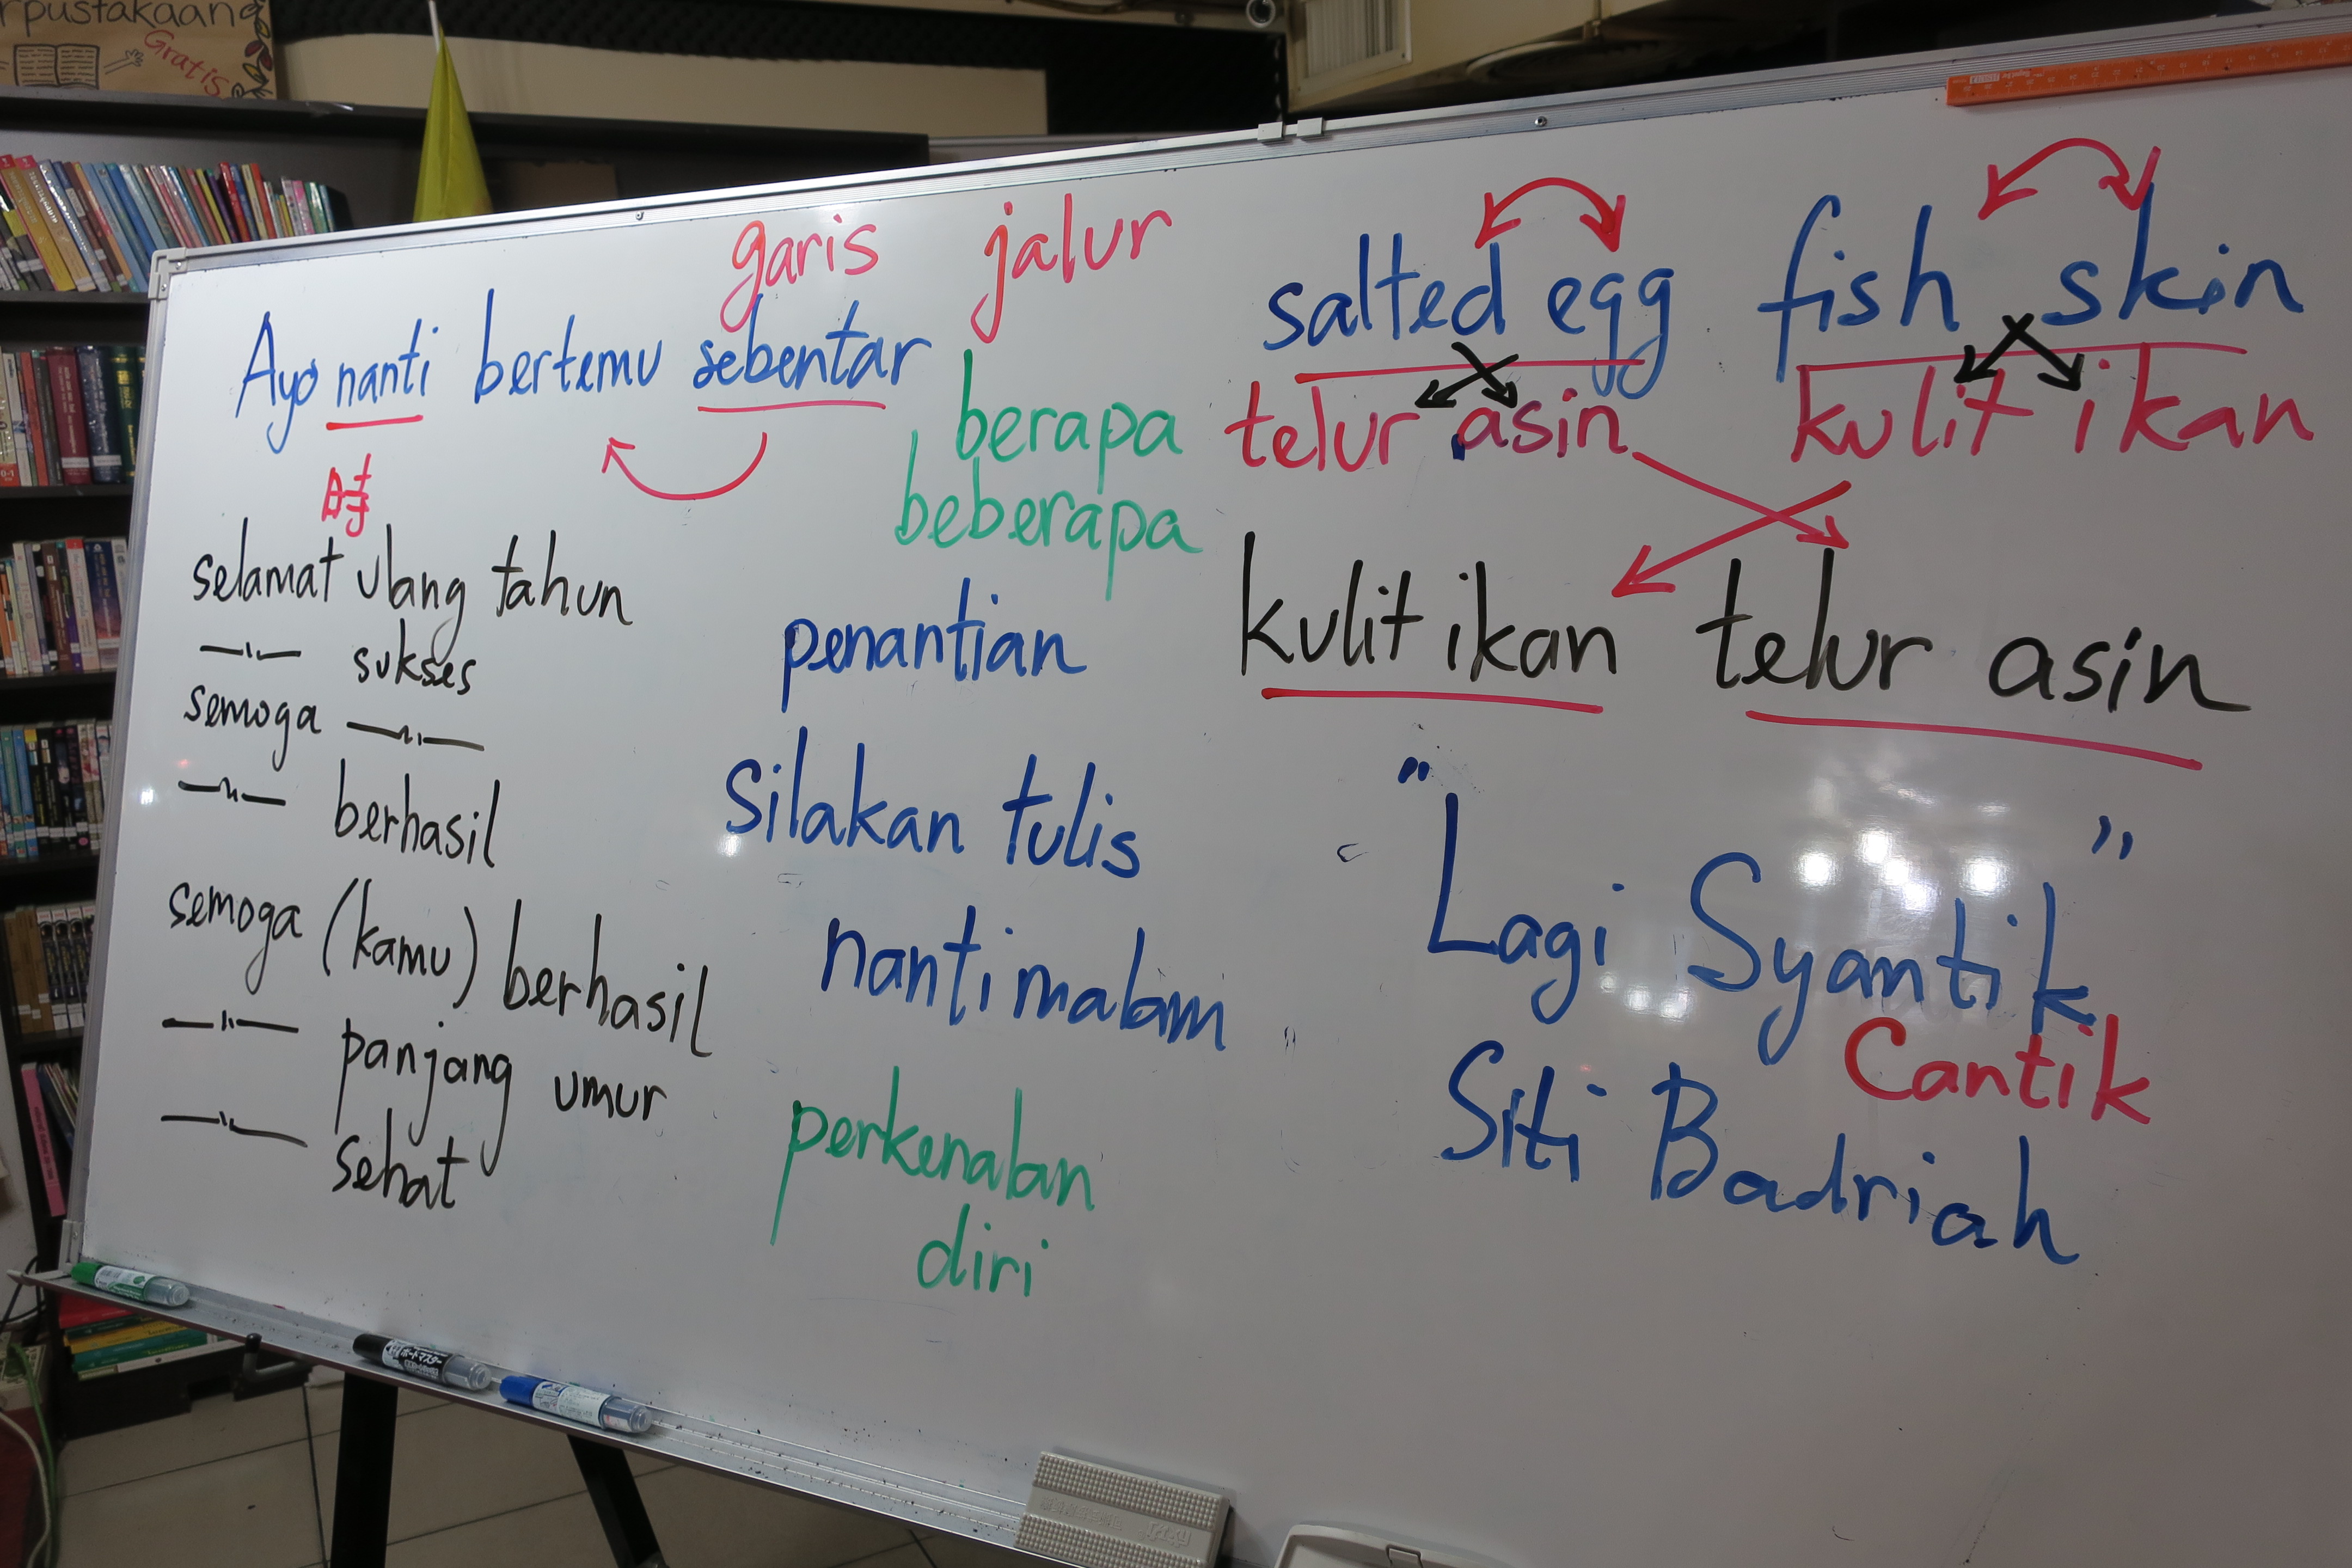 rpustakaan
Gratis
garis jalur
Ayo nanti bertemu sebentar
時
berapa
beberapa
selamat ulang tahun
—"— sukses
semoga —"—
—"— berhasil
semoga (kamu) berhasil
—"— panjang umur
—"— sehat
penantian
Silakan tulis
nanti malam
perkenalan
diri
salted egg fish skin
telur asin kulit ikan
kulit ikan telur asin
"Lagi Syantik"
Cantik
Siti Badriah
ボードマスター